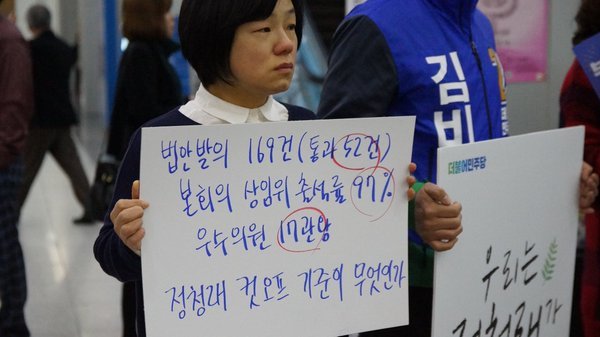 법안발의 169건(통과 52건)
본회의 상임위 출석률 97%
우수의원 17관왕
정청래 컷오프 기준이 무엇인가
김비
더불어민주당
우리는
정청래가